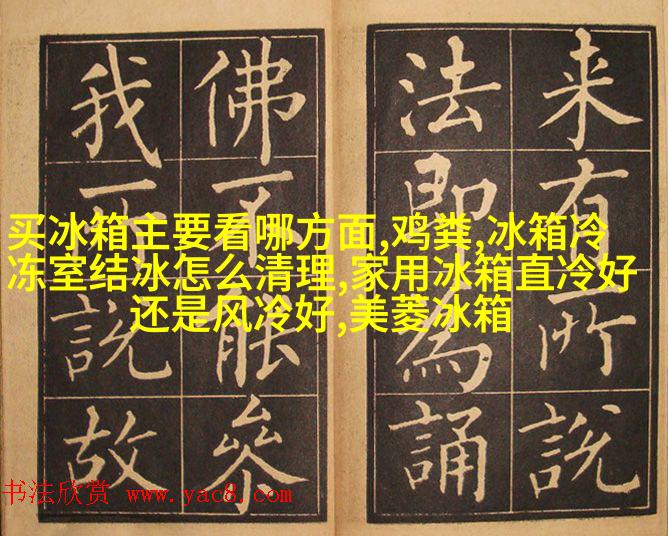 来有所說
法即為誦
佛不能叅
我所說故
买冰箱主要看哪方面,鸡粪,冰箱冷
冻室结冰怎么清理,家用冰箱直冷好
还是风冷好,美菱冰箱
书法欣赏 www.yac8.com